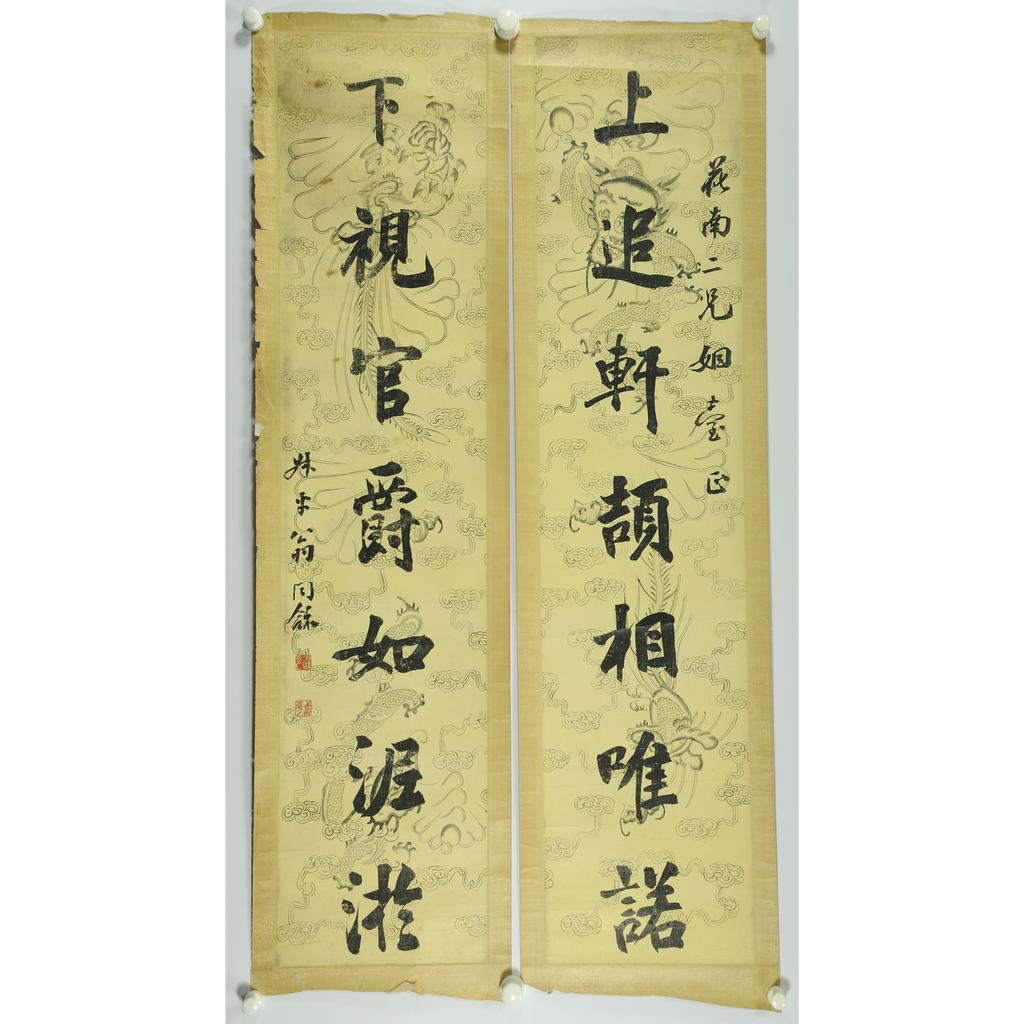 南二兄姻臺正
上追軒頡相唯諾
下視官爵如泥淤
叔平翁同龢